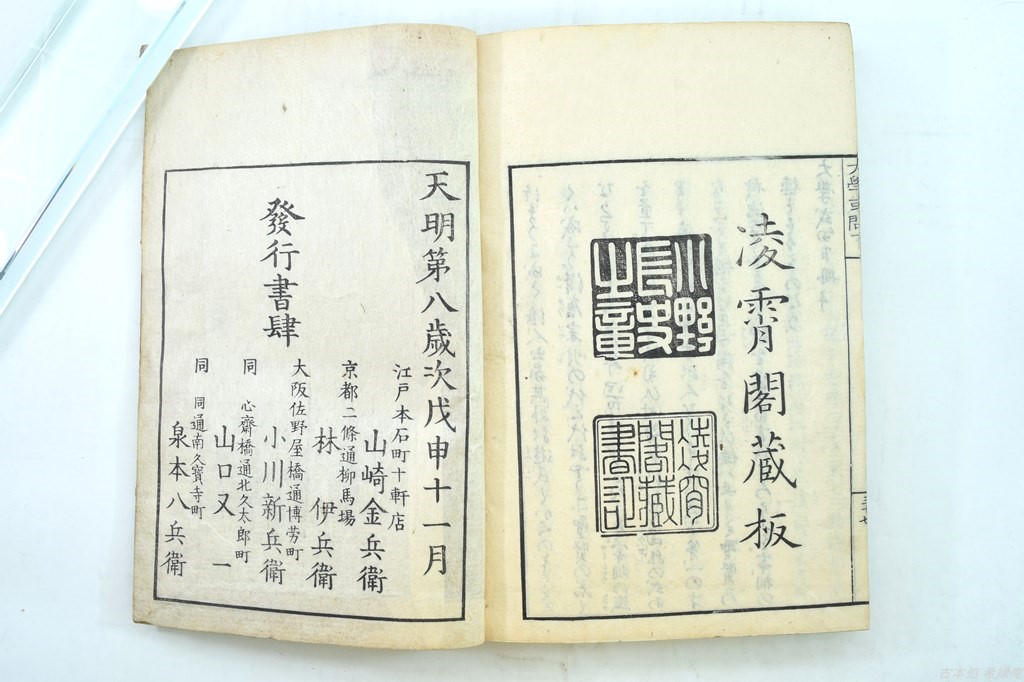 大學或問
凌霄閣蔵板
小野
長史
之章
凌霄
閣藏
書記
天明第八歳次戊申十一月
發行書肆
江戸本石町十軒店
山崎金兵衛
京都二條通柳馬場
林伊兵衛
大阪佐野屋橋通博労町
小川新兵衛
同 心齋橋通北久太郎町
山口又一
同 同通南久寳寺町
泉本八兵衛